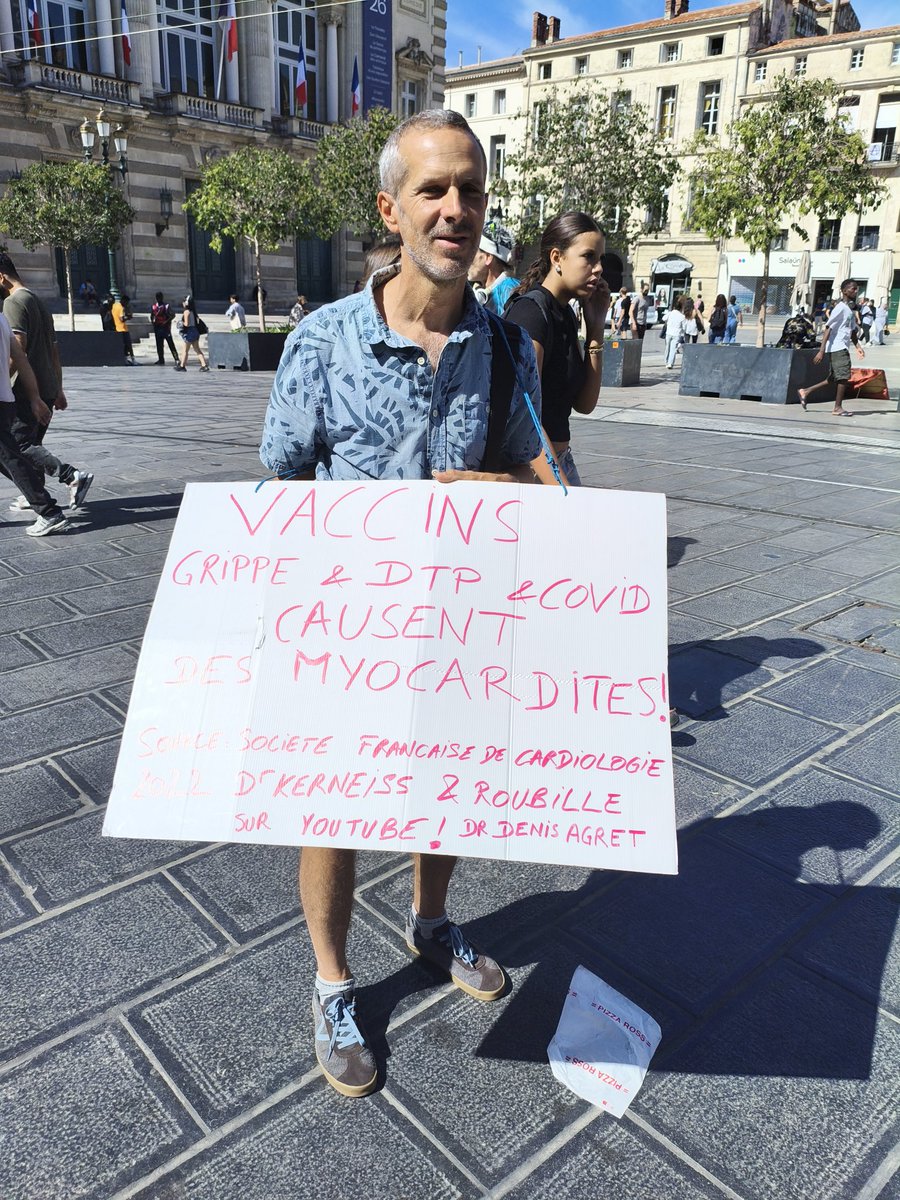 26
VACCINS
GRIPPE & DTP & COVID
CAUSENT
DES MYOCARDITES!
SOURCE: SOCIETE FRANCAISE DE CARDIOLOGIE
2022 Dr KERNEISS & ROUBILLE
SUR YOUTUBE! DR DENIS AGRET
= PIZZA ROSS =
= PIZZA ROSS